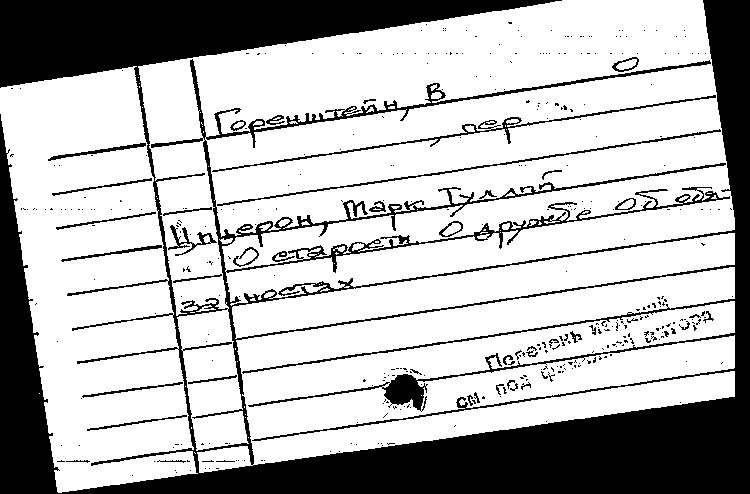 О
Горенштейн, В
, пер
Цицерон, Марк Туллий
О старости. О дружбе Об обя-
занностях
Перечень изданий
см. под фамилией автора